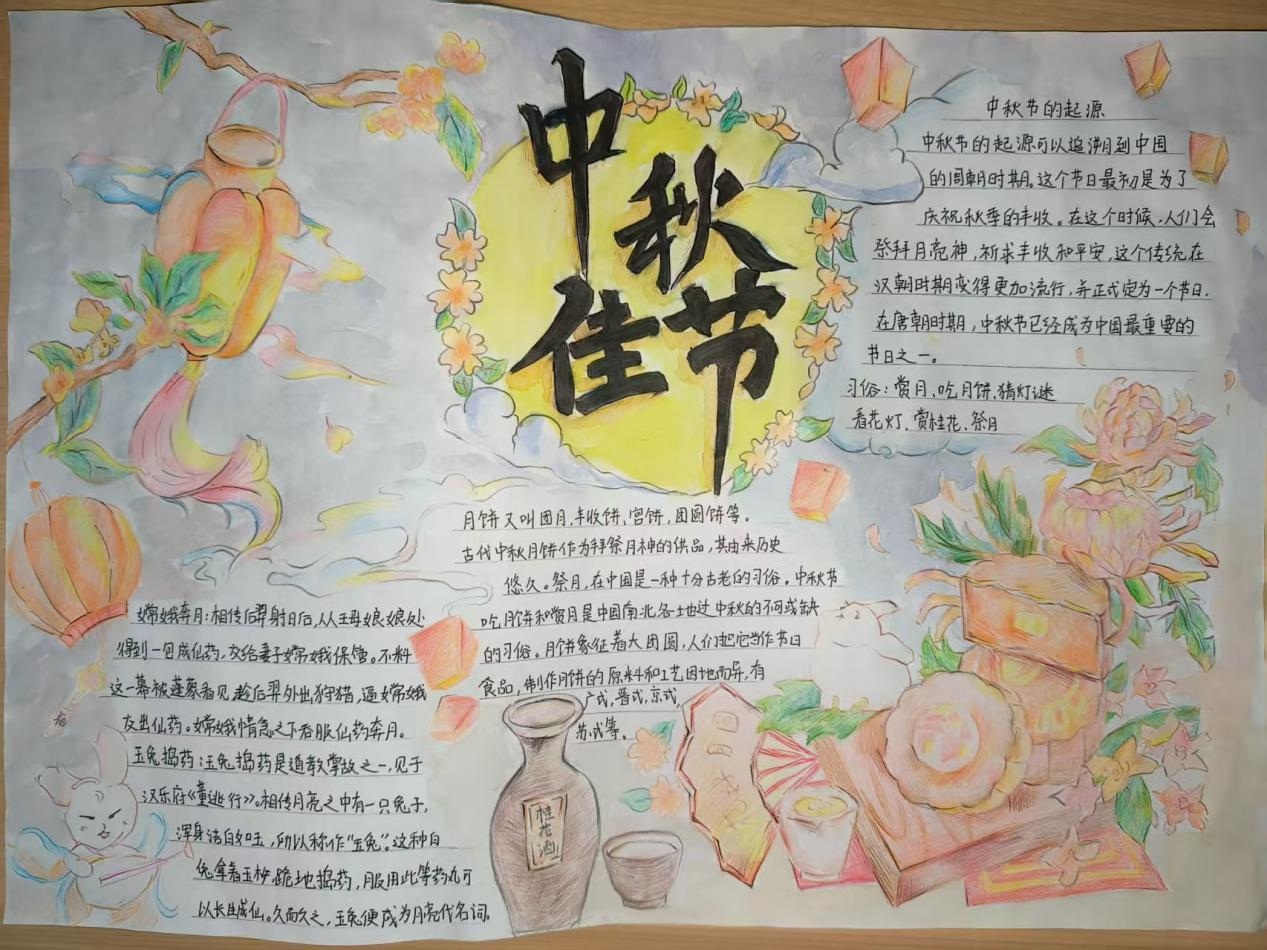 中秋佳节
中秋节的起源
中秋节的起源可以追溯到中国
的周朝时期。这个节日最初是为了
庆祝秋季的丰收。在这个时候,人们会
祭拜月亮神,祈求丰收和平安,这个传统在
汉朝时期变得更加流行,并正式定为一个节日.
在唐朝时期,中秋节已经成为中国最重要的
节日之一。
习俗:赏月、吃月饼、猜灯谜
看花灯、赏桂花、祭月
月饼又叫团月、丰收饼、宫饼,团圆饼等。
古代中秋月饼作为拜祭月神的供品,其由来历史
悠久。祭月,在中国是一种十分古老的习俗。中秋节
吃月饼和赏月是中国南北各地过中秋的不可或缺
的习俗。月饼象征着大团圆,人们把它当作节日
食品,制作月饼的原料和工艺因地而异,有
广式,晋式,京式,
苏式等.
嫦娥奔月:相传后羿射日后,从王母娘娘处
得到一包成仙药,交给妻子嫦娥保管。不料
这一幕被蓬蒙看见,趁后羿外出狩猎,逼嫦娥
交出仙药。嫦娥情急之下吞服仙药奔月。
玉兔捣药:玉兔捣药是道教掌故之一,见于
汉乐府《董逃行》。相传月亮之中有一只兔子,
浑身洁白如玉,所以称作“玉兔”。这种白
兔拿着玉杵,跪地捣药,服用此等药丸可
以长生成仙。久而久之,玉兔便成为月亮代名词.
桂花酒